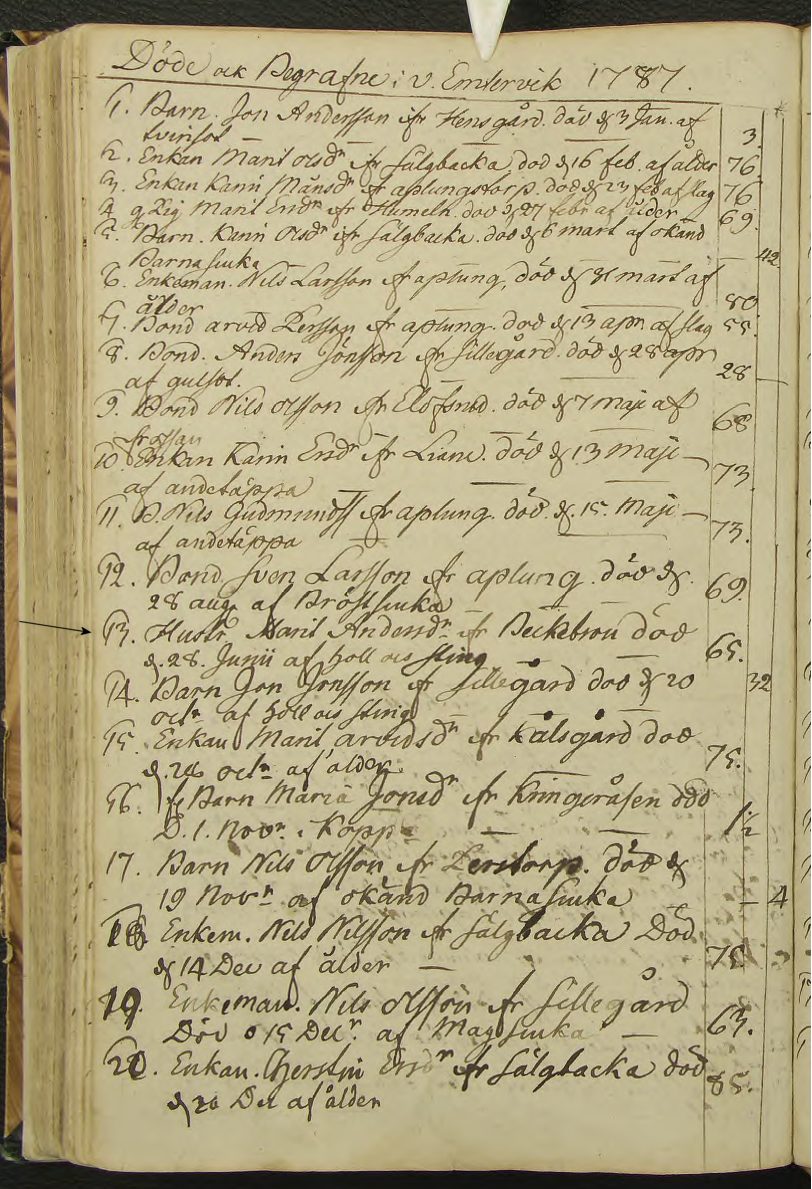 Döde ock Begrafne i V. Emtervik 1787.
1. Barn. Jon Andersson ifr Hensgård. död d. 3 Jan. af
tvinsot — 3.
2. Enkan Marit Olsdr ifr Sälgbacka död d. 16 feb. af ålder 76.
3. Enkan Karin Månsdr fr aplungstorp. död d. 23 feb af slag 76
4. Pig Marit Ersdr fr Humeln. död d. 27 febr af ålder — 69.
5. Barn. Karin Olsdr ifr Sälgbacka. död d. 6 mart af okänd
Barnasiuka — 42
6. Enkeman. Nils Larsson fr aplung, död d. 31 mart af
ålder 80
7. Bond arvid Persson fr aplung. död d. 13 apr af slag 55.
8. Bond. Anders Jönsson fr Sillegård. död d. 28 apr
af gulsot. 28 —
9. Bond Nils Olsson fr död d. 7 maji af
frossan 68
10. Enkan Karin Ersdr ifr Liane. död d. 13 maji —
af andetäppa 73.
11. B. Nils Gudmundss fr aplung. död. d. 15. Maji —
af andetäppa 73.
12. Bond Sven Larsson fr aplung. död d.
28 aug. af Bröstsiuka 69.
13. Hustr. Marit Andersdr fr död
d. 28. Junii af håll ock sting 65.
14. Barn Jon Jonsson fr Sillegård död d. 20
octr. af håll ock sting 32
15. Enkan Marit arvidsdr fr Kålsgård död
d. 26 octr af ålder. 75.
16. Barn Maria Jonsdr fr Kringeråsen död
D. 1. Novr. i Kopp — — 1 1/2
17. Barn Nils Olsson fr Perstorp. död d.
19 Novr. af okänd Barnasiuka — 4
18 Enkem. Nils Nilsson fr Sälgbacka Död
d. 14 Dec af ålder — 75
19. Enkeman. Nils Olsson fr Sillegård
Död d. 15 Decr. af Magsiuka — 63.
20. Enkan. Cherstin Ersdr fr Sälgbacka död
d. 20 Dec af ålder 85.